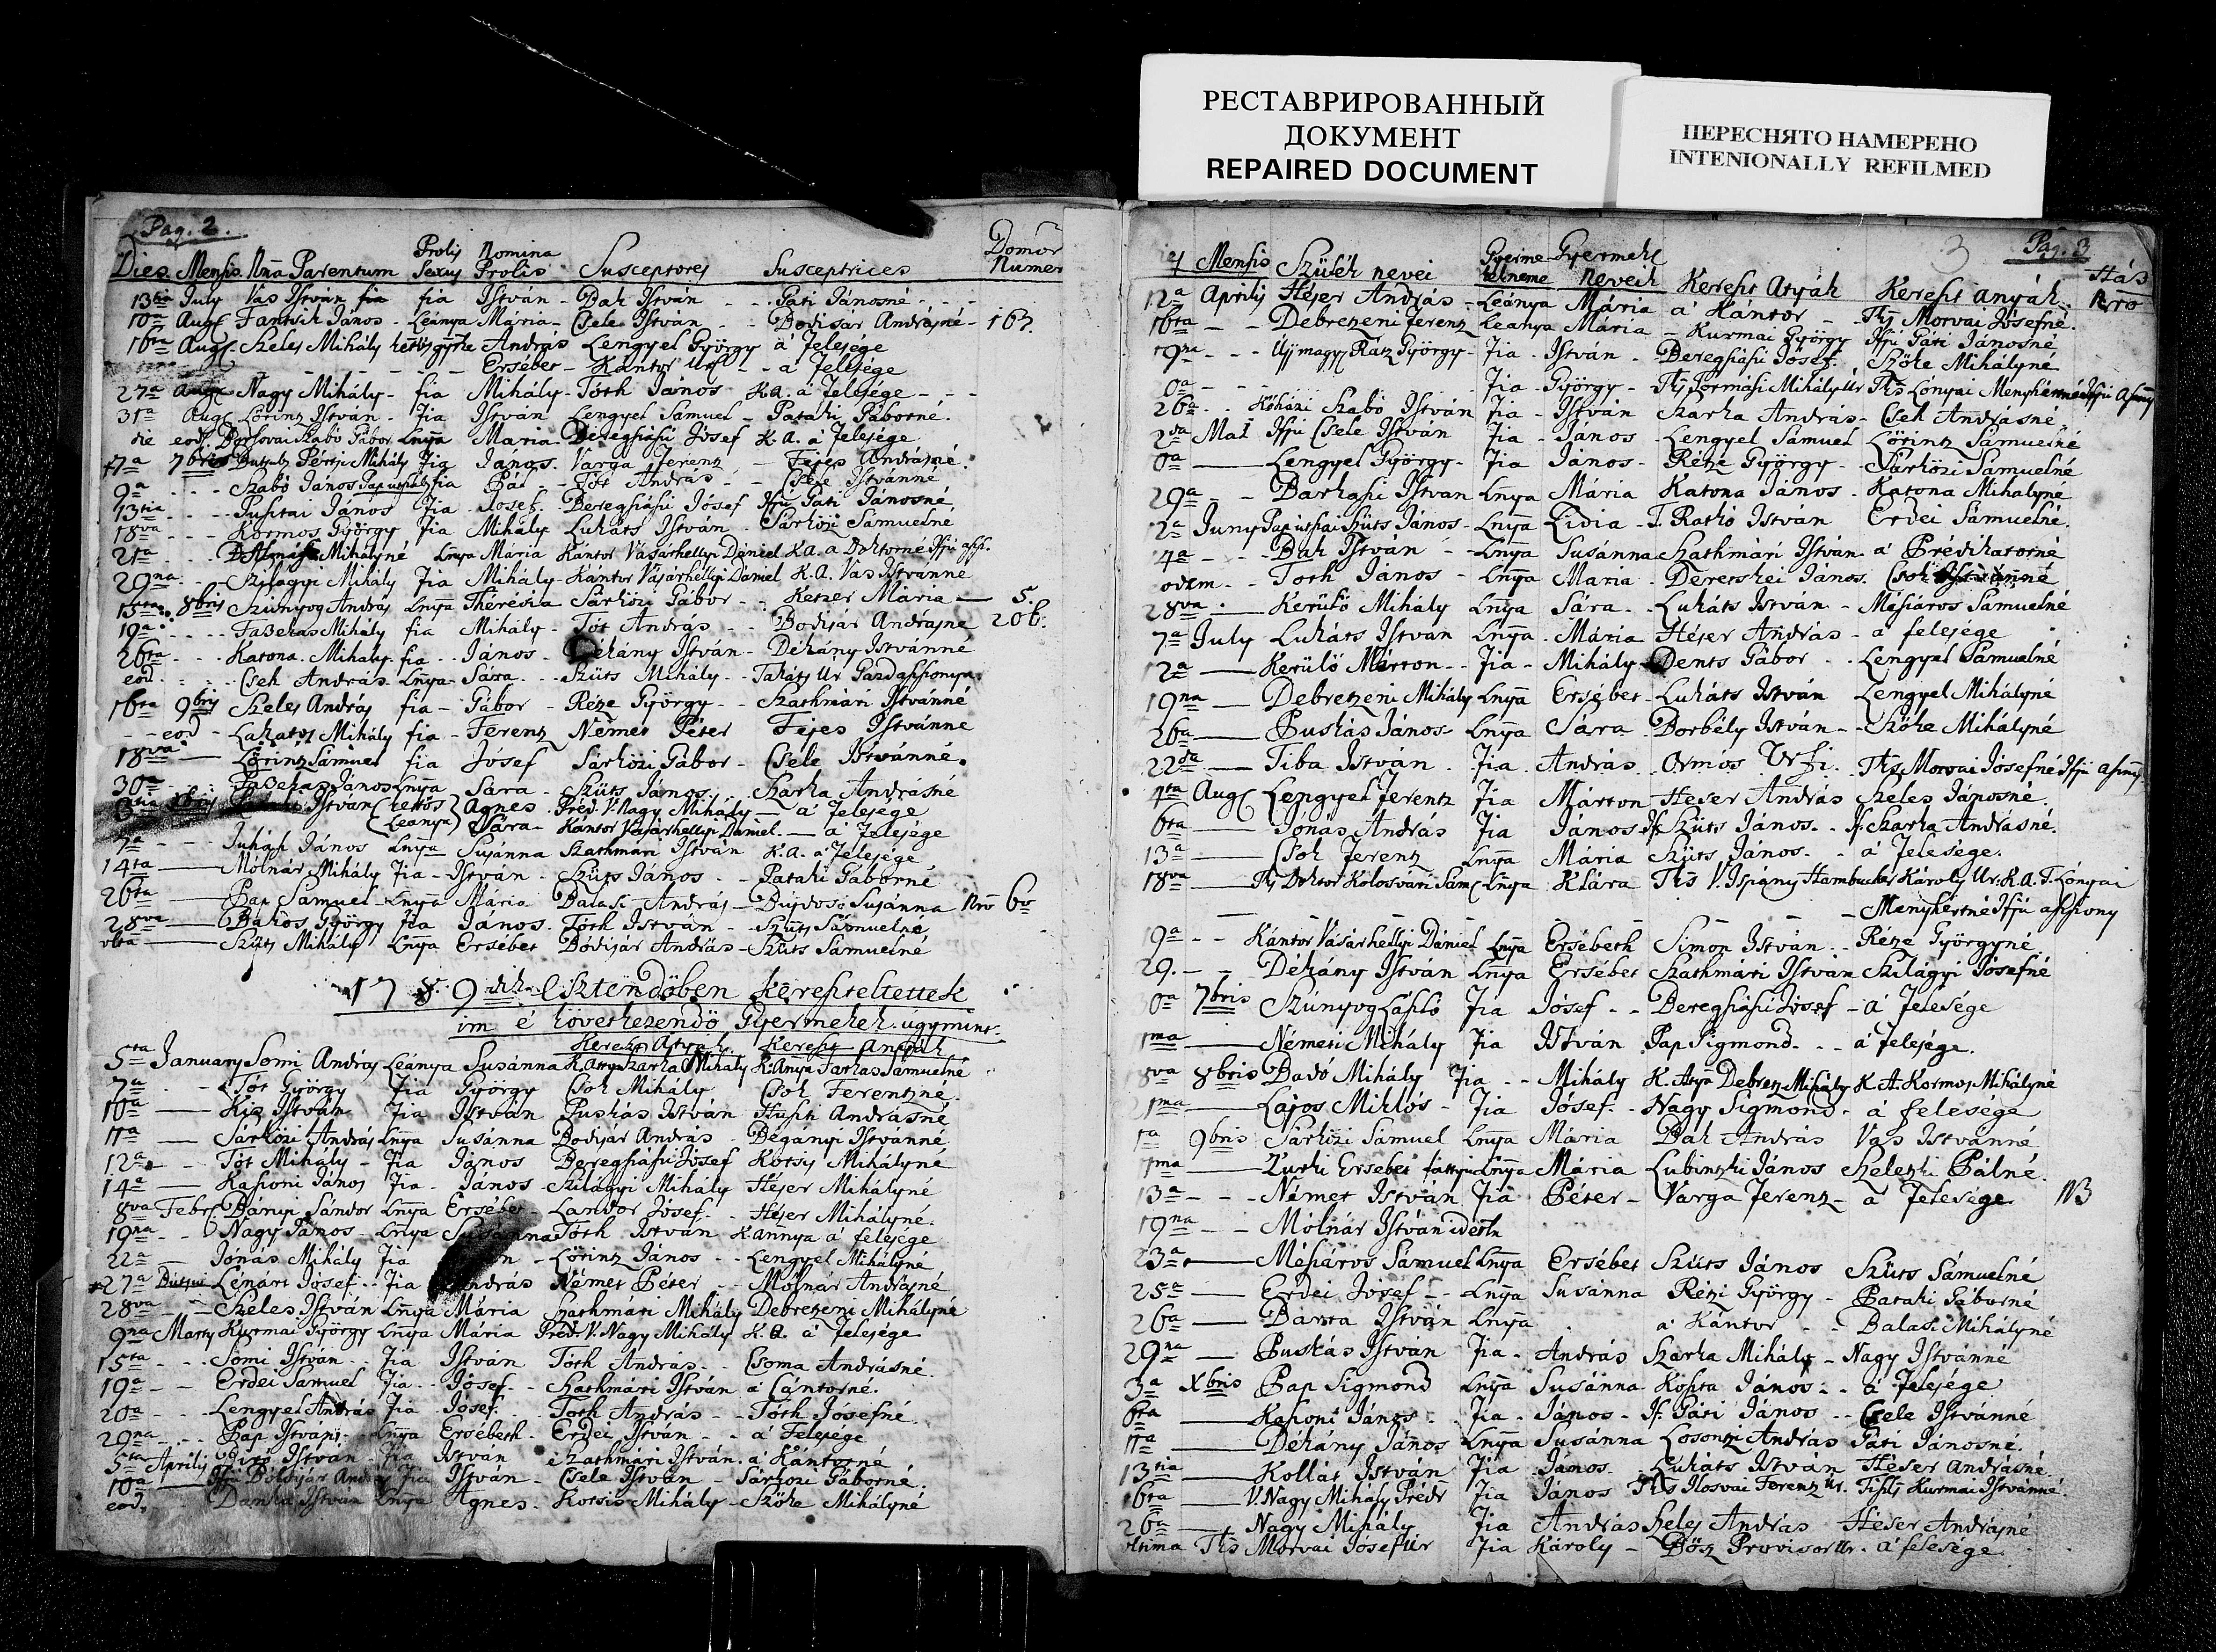 РЕСТАВРИРОВАННЫЙ
ДОКУМЕНТ
REPAIRED DOCUMENT
ПЕРЕСНЯТО НАМЕРЕНО
INTENIONALLY REFILMED
Pag. 2.
Dies Mensis Nna Parentum Prolis Sexus Nomina Prolis Susceptores Susceptrices Domor Numer
13tia July Vas István fia István - Bak István - - Pati Jánosné - - -
10a Aug Fantsik János - Leánya Mária - Csele István - - Bodisár Andrásné - 163.
16ta Aug Szeles Mihály András Lengyel György á felesége
Ersébet - Kántor - - á felesége
27a Aug Nagy Mihály - fia Mihály - Tóth János K.A. á felesége - - -
31a Aug Lörintz István - fia István Lengyel Sámuel - Pataki Gáborné.
die eod Borsovai Szabó Gábor Lnya Maria Deregsiásii Jósef K.A. á felesége
+7a 7bris Péntsi Mihály fia János. Varga Ferenz - Fejes Andrásné.
9a - - - Szabó János fia Pál - Tót András - - Csele Istvánné
13tia - - - Pusitai János fia Josef. Deregsiásii Jósef Ifiu Pati Jánosné
18va - - - Kormos György fia Mihály Lukáts István Sárközi Sámuelné
21a Mihályné Lnya Mária Kántor Vásárhellyi Dániel K.A. a Doktorné
29na - - Szilágyi Mihály fia Mihály - Kántor Vásárhellyi Dániel K.A. Vas Istvánné
15ta 8bris Szunyog András Lnya Thérésia Sárközi Gábor - - Ketzer Mária - 5.
19a - - - Fazekas Mihály fia Mihály - Tót András - - Bodisár Andrásne 206.
26ta - - - Katona Mihaly fia - János - Dékány István - Dékány Istvánné
eod. - - - Cseh András - Lnya - Sára - Szüts Mihály - Takáts Ur
16ta 9bris Szeles András fia - Gábor - Réze György - - Szathmári Istvánné
- - eod - Lakatos Mihály fia - Ferenz Német Péter Fejes Istvánne
18va - Lörintz Sámuel fia Jósef Sárközi Gábor - Csele Istvánné.
30a - - Fazekas János Lnya Sára - Szüts János - Szarka Andrásné
István kettös Agnes - Préd. V. Nagy Mihály - á felesége
Leanya Sára - Kántor Vásárhellyi Dániel. - á felesége
7a - - Juhász János Lnya Susánna Szathmári István K.A. á felesége
14ta - Mólnár Mihály fia - István - Szüts János - - Pataki Gáborné
26ta - Pap Samuel - Lnya Mária Balasi András - Bujdosó Susánna Nro 60
28va - Bakos György fia János. Tóth István - Szüts Sámuelné
ulta - Szüts Mihály Lnya Ersébet Bodisár András - Szüts Sámuelné
1789dik Esztendőben Kereszteltettek
im é következendő Gyermekek. úgymint
Kereszt Atyák Kereszt Anyák
5ta January Somi András Leánya Susánna K. Atya Szarka Mihály K. Anya Farkas Sámuelné
7a - - Tót György fia György Csok Mihály Csok Ferentzné.
10a - Kis István fia István Puskás István Andrásné
11a - Sárközi András Lnya Susánna Bodisár András - Dégányi Istvánné
12a - - Tót Mihály - fia János Deregsiásii Jósef Kotsis Mihályné
14a - Kaponi János fia - János - Szilágyi Mihály Héser Mihályné
8va Febr Bányi Sándor Lnya Ersébet - Landor Jósef. - Héjer Mihályné.
19na - - Nagy János - Lnya Susánna Tóth István K. annya á felesége
22a - Jonás Mihály fia - Lörintz János - - Lengyel Mihályné
+27a Lénárt Jósef - - fia András Német Péter - - Mólnár Andrásné
28va - Szeles István Lnya Mária Szathmári Mihály Debretzeni Mihályné
9na Marty Kurmai György Lnya Mária Préd. V. Nagy Mihály K.A. á felesége
15ta - - Somi István - fia István Tóth András - - Csoma Andrásné.
19a - - Erdei Samuel fia - Jósef. - Szathmári István á Cántorné.
20a - - Lengyel András fia Jósef. Toth András - - Tóth Jósefné
29na - - Pap István - Lnya Ersébeth - Erdei István - - á felesége
5ta Aprilis Biró István fia István Szathmári István. á Kántorné
10a - Ifiu Bodisár András fia István - Csele István - Sárközi Gáborné.
eod. Danka István Lnya Agnes - Kotsis Mihály - Szőke Mihályné
Pag. 3
Mensis Szülék nevei Gyermek neme Gyermek Neveik Kereszt Atyák Kereszt Anyák Ház Nro
12a Aprilis Héjer András - Leánya Mária á Kántor - - Tks Morvai Jósefné.
16ta - - Debretzeni Ferenz Leanya Mária - Kurmai György Ifjú Páti Jánosné
19na - - - Ujj magy Rátz György - fia - István - Deregsiásii Jósef. - Szőke Mihályné
fia - György - Tks Tormási Mihály Ur Tks Lonyai Menyhértné
26a - - Kőházi Szabó István fia - István Szarka András - Cseh Andrásné
2da Mai Ifjú Csele István fia - János - Lengyel Sámuel Lörintz Sámuelné
8a - Lengyel György - fia János - Réze György - Sárközi Samuelné
29a - - Barkasi Istvan Lnya Mária Katona János - Katona Mihalyné
2a Juny Szüts János - Lnya Lidia - I. Rathó István Erdei Sámuelné.
4a - - Bak István - - Lnya Susánna Szathmári István - á Prédikátorné
eodem - - Toth János - Lnya Mária - Deretskei János. Csok
28va - - Kerülő Mihály Lnya Sára - Lukáts István - Mésiáros Sámuelné
7a July Lukáts Istvan Lnya - Mária Héjer András - á felesége
12a - Kerülő Márton - - fia - Mihály - Dents Gábor - - Lengyel Sámuelné
19na - Debretzeni Mihály Lnya Ersébet - Lukáts István Lengyel Mihályné
26a - Puskás János - Lnya Sára - Borbély István - Szőke Mihályné
22da - Tiba István - fia - András - Ormos Urfi. - Tks Morvai Jósefné
4ta Aug Lengyel Ferentz fia Márton Héser András Szeles Jánosné.
6ta - Jónás András fia János If. Szüts János - - If. Szarka Andrasné.
13a - Csok Ferenz Lnya Mária Szüts János - - á felesége.
18va - Tks Doktor Kolosvári Sam Lnya Klára Tks V. Ispány Hambucher Károly Ur. K.A. T. Lónyai
Menyhértné Ifjú asszony
19a - - Kántor Vásárhellyi Dániel Lnya Ersébeth Simon István - - Réze Györgyné
29. - - Dékány István Lnya Ersébet Szathmári István Szilágyi Jósefné
7bris Szúnyog László fia Jósef - - Deregsiásii Jósef - á felesége
1ma - Németi Mihály fia István Pap Sigmond - - - á felesége.
8va 8bris Badó Mihály fia - - Mihály K. Atya Debretz Mihály K.A. Kormos Mihályné
21ma - Lajos Miklós - fia Jósef - Nagy Sigmond - á felesége
9bris Sárközi Sámuel Lnya Mária Bak András Vas Istvánné
- Zurki Ersébet Lnya Mária Lubintzki János Szeletzki Pálné.
13a - - - Német István fia Péter - Varga Ferenz - á felesége NB
19na - - Mólnár István
23a - Mésiáros Sámuel Lnya Ersébet Szüts János Szüts Sámuelné
25a - Erdei Jósef - - Lnya Susánna Rézi György - Pataki Gáborné
26a - Barta István Lnya á Kántor - - Balasi Mihályné
29na - Puskás István fia - András Szarka Mihály - Nagy Istvánné
3a Xbris Pap Sigmond Lnya Susánna Kószta János - - á felesége
6ta - Kaponi János - fia - János - If. Páti János - - Csele Istvánné
11a - Dékány János Lnya Susánna Losontzi András Páti Jánosné.
13tia - Kollát István fia János - Lukáts István Héser Andrásné
16ta - V. Nagy Mihály Prédr fia János Tks Ilosvai Ferenz Ur. Kurmai Istvánné.
26a - Nagy Mihály fia András Szeles András Héser Andrásné
ultima Tks Morvai Jósef Ur fia Károly - Bősz Provisor Ur. á felesége.